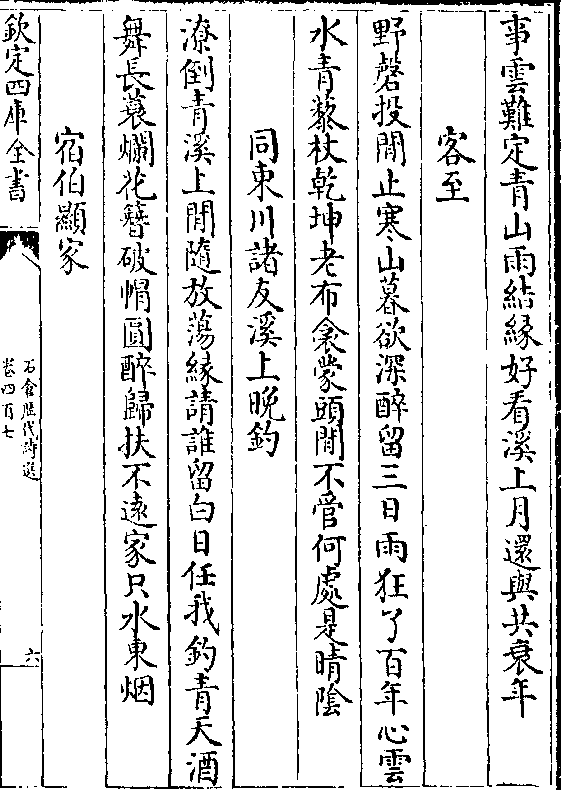 事雲難定青山雨結緣好看溪上月還與共衰年
客至
野磬投閒止寒山暮欲深醉留三日雨狂了百年心雲
水青藜杖乾坤老布衾蒙頭閒不管何處是晴陰
同東川諸友溪上晚釣
潦倒青溪上閒隨放蕩緣請誰留白日任我釣青天酒
舞長蓑爛花簪破帽圓醉歸扶不遠家只水東烟
宿伯顯家
欽定四庫全書
石倉歷代詩選
卷四百七
六